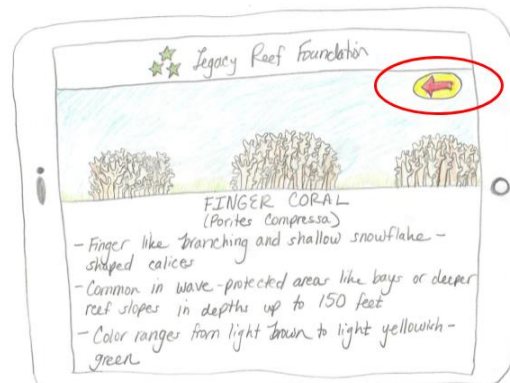 Legacy Reef Foundation
FINGER CORAL
(Porites Compressa)
- Finger like branching and shallow snowflake -
shaped calices
- Common in wave-protected areas like bays or deeper
reef slopes in depths up to 150 feet
- Color ranges from light brown to light yellowish -
green